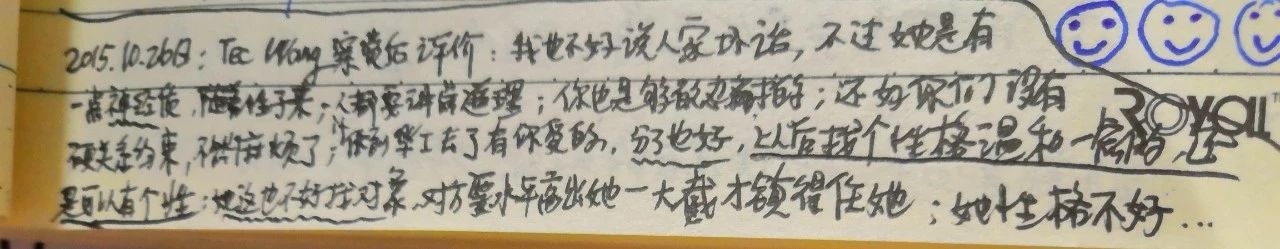 2015.10.26日：Tec Wang 案竟后评价：我也不好说人家坏话，不过她是有
一点神经质，随着性子来；人都要讲点道理；你也是够；还好你们没有
硬关系约束，不然麻烦了；你到华工去了有你受的，分了也好，以后找个性格温和一点的，还
是可以有个性；她这也不好找对象，对方要水平高出她一大截才镇得住她；她性格不好…
ROYAL